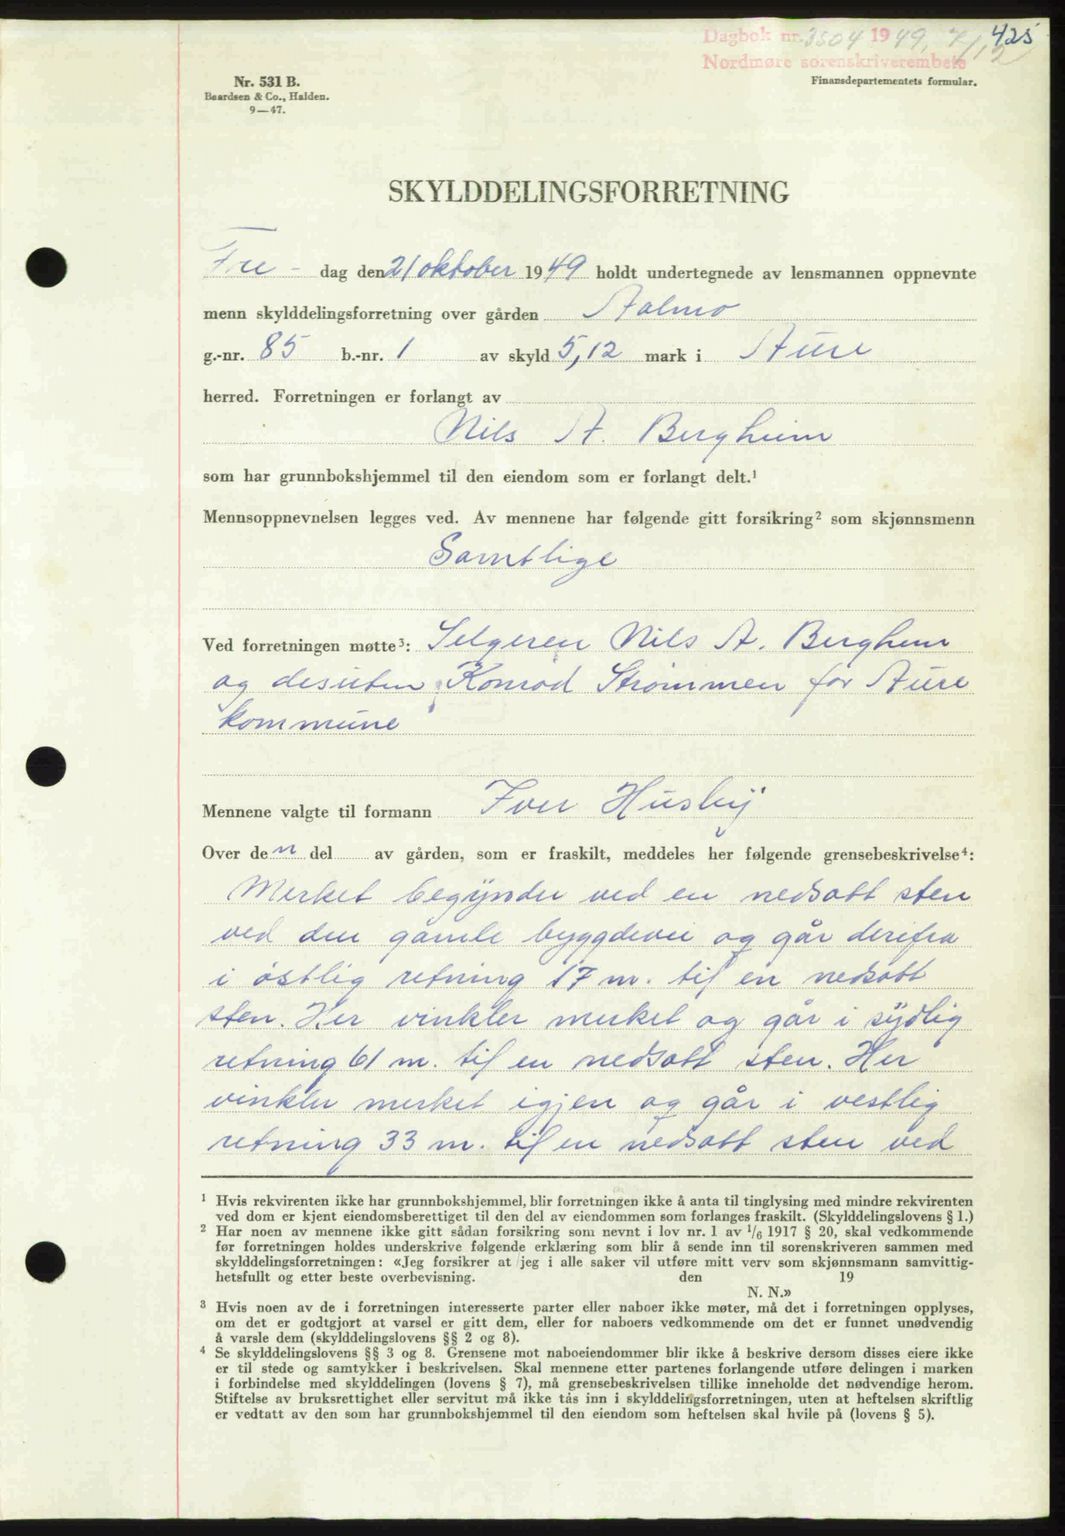 425
Dagbok nr. 3504 1949, 7/12
Nordmøre sorenskriverembete
Nr. 531 B.
Baardsen & Co., Halden.
9—47.
Finansdepartementets formular.
SKYLDDELINGSFORRETNING
Fre- dag den 21 oktober 1949 holdt undertegnede av lensmannen oppnevnte
menn skylddelingsforretning over gården Aalmo
g.-nr. 85 b.-nr. 1 av skyld 5,12 mark i Aure
herred. Forretningen er forlangt av
Nils A. Berghem
som har grunnbokshjemmel til den eiendom som er forlangt delt.¹
Mennsoppnevnelsen legges ved. Av mennene har følgende gitt forsikring² som skjønnsmenn
Samtlige
Ved forretningen møtte³: Selgeren Nils A. Berghem
og desuten Konrad Strømmen for Aure
kommune
Mennene valgte til formann Iver Husby
Over den del av gården, som er fraskilt, meddeles her følgende grensebeskrivelse⁴:
Merket begynder ved en nedsatt sten
ved den gamle byggdevei og går derifra
i østlig retning 17 m. til en nedsatt
sten. Her vinkler merket og går i sydlig
retning 61 m. til en nedsatt sten. Her
vinkler merket igjen og går i vestlig
retning 33 m. til en nedsatt sten ved
¹ Hvis rekvirenten ikke har grunnbokshjemmel, blir forretningen ikke å anta til tinglysing med mindre rekvirenten
ved dom er kjent eiendomsberettiget til den del av eiendommen som forlanges fraskilt. (Skylddelingslovens § 1.)
² Har noen av mennene ikke gitt sådan forsikring som nevnt i lov nr. 1 av 1/6 1917 § 20, skal vedkommende
før forretningen holdes underskrive følgende erklæring som blir å sende inn til sorenskriveren sammen med
skylddelingsforretningen: «Jeg forsikrer at jeg i alle saker vil utføre mitt verv som skjønnsmann samvittig-
hetsfullt og etter beste overbevisning. den 19
N. N.»
³ Hvis noen av de i forretningen interesserte parter eller naboer ikke møter, må det i forretningen opplyses,
om det er godtgjort at varsel er gitt dem, eller for naboers vedkommende om det er funnet unødvendig
å varsle dem (skylddelingslovens §§ 2 og 8).
⁴ Se skylddelingslovens §§ 3 og 8. Grensene mot naboeiendommer blir ikke å beskrive dersom disses eiere ikke
er til stede og samtykker i beskrivelsen. Skal mennene etter partenes forlangende utføre delingen i marken
i forbindelse med skylddelingen (lovens § 7), må grensebeskrivelsen tillike inneholde det nødvendige herom.
Stiftelse av bruksrettighet eller servitut må ikke tas inn i skylddelingsforretningen, uten at heftelsen skriftlig
er vedtatt av den som har grunnbokshjemmel til den eiendom som heftelsen skal hvile på (lovens § 5).